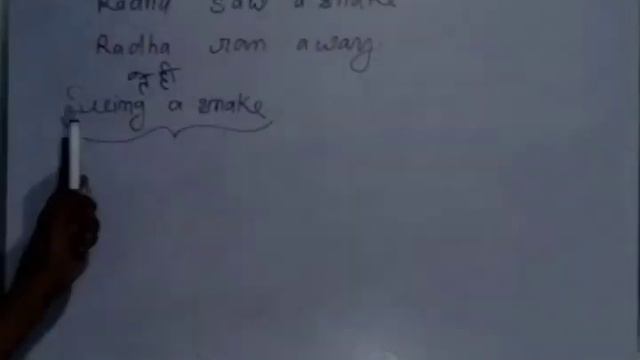 Radha saw a snake
Radha ran away.
ते ही
Seeing a snake